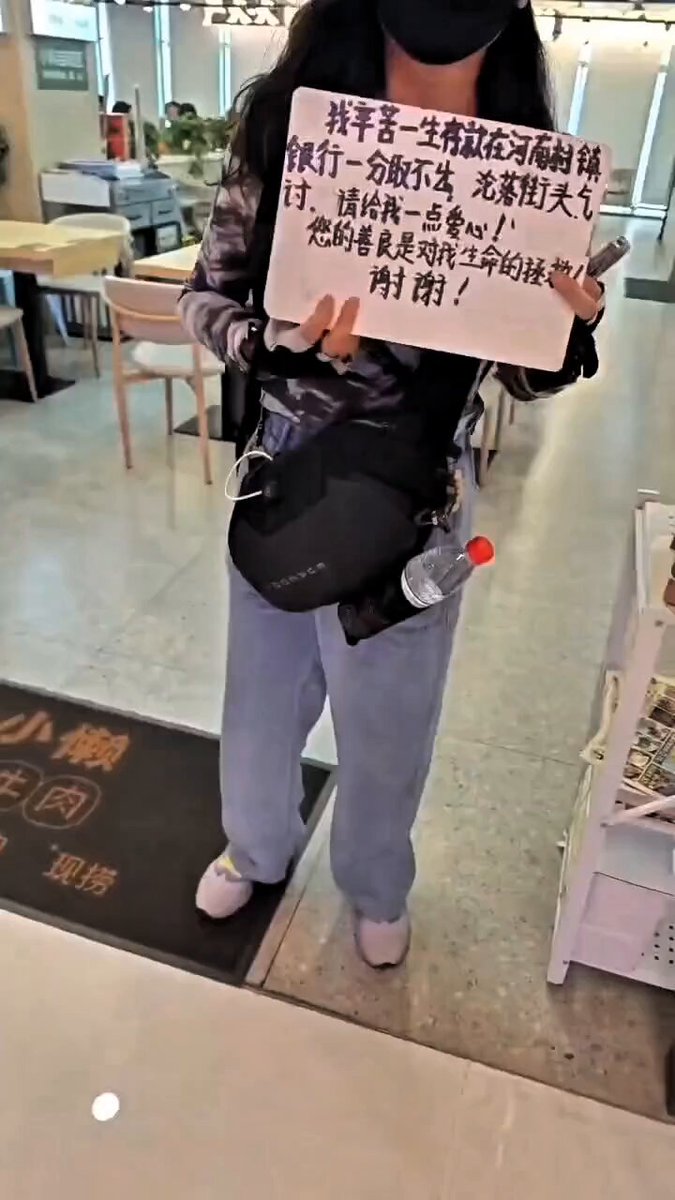 我辛苦一生存款在河南村镇
银行一分取不出, 沦落街头乞
讨. 请给我一点爱心!
您的善良是对我生命的拯救!
谢谢!
小懒
牛肉
现捞